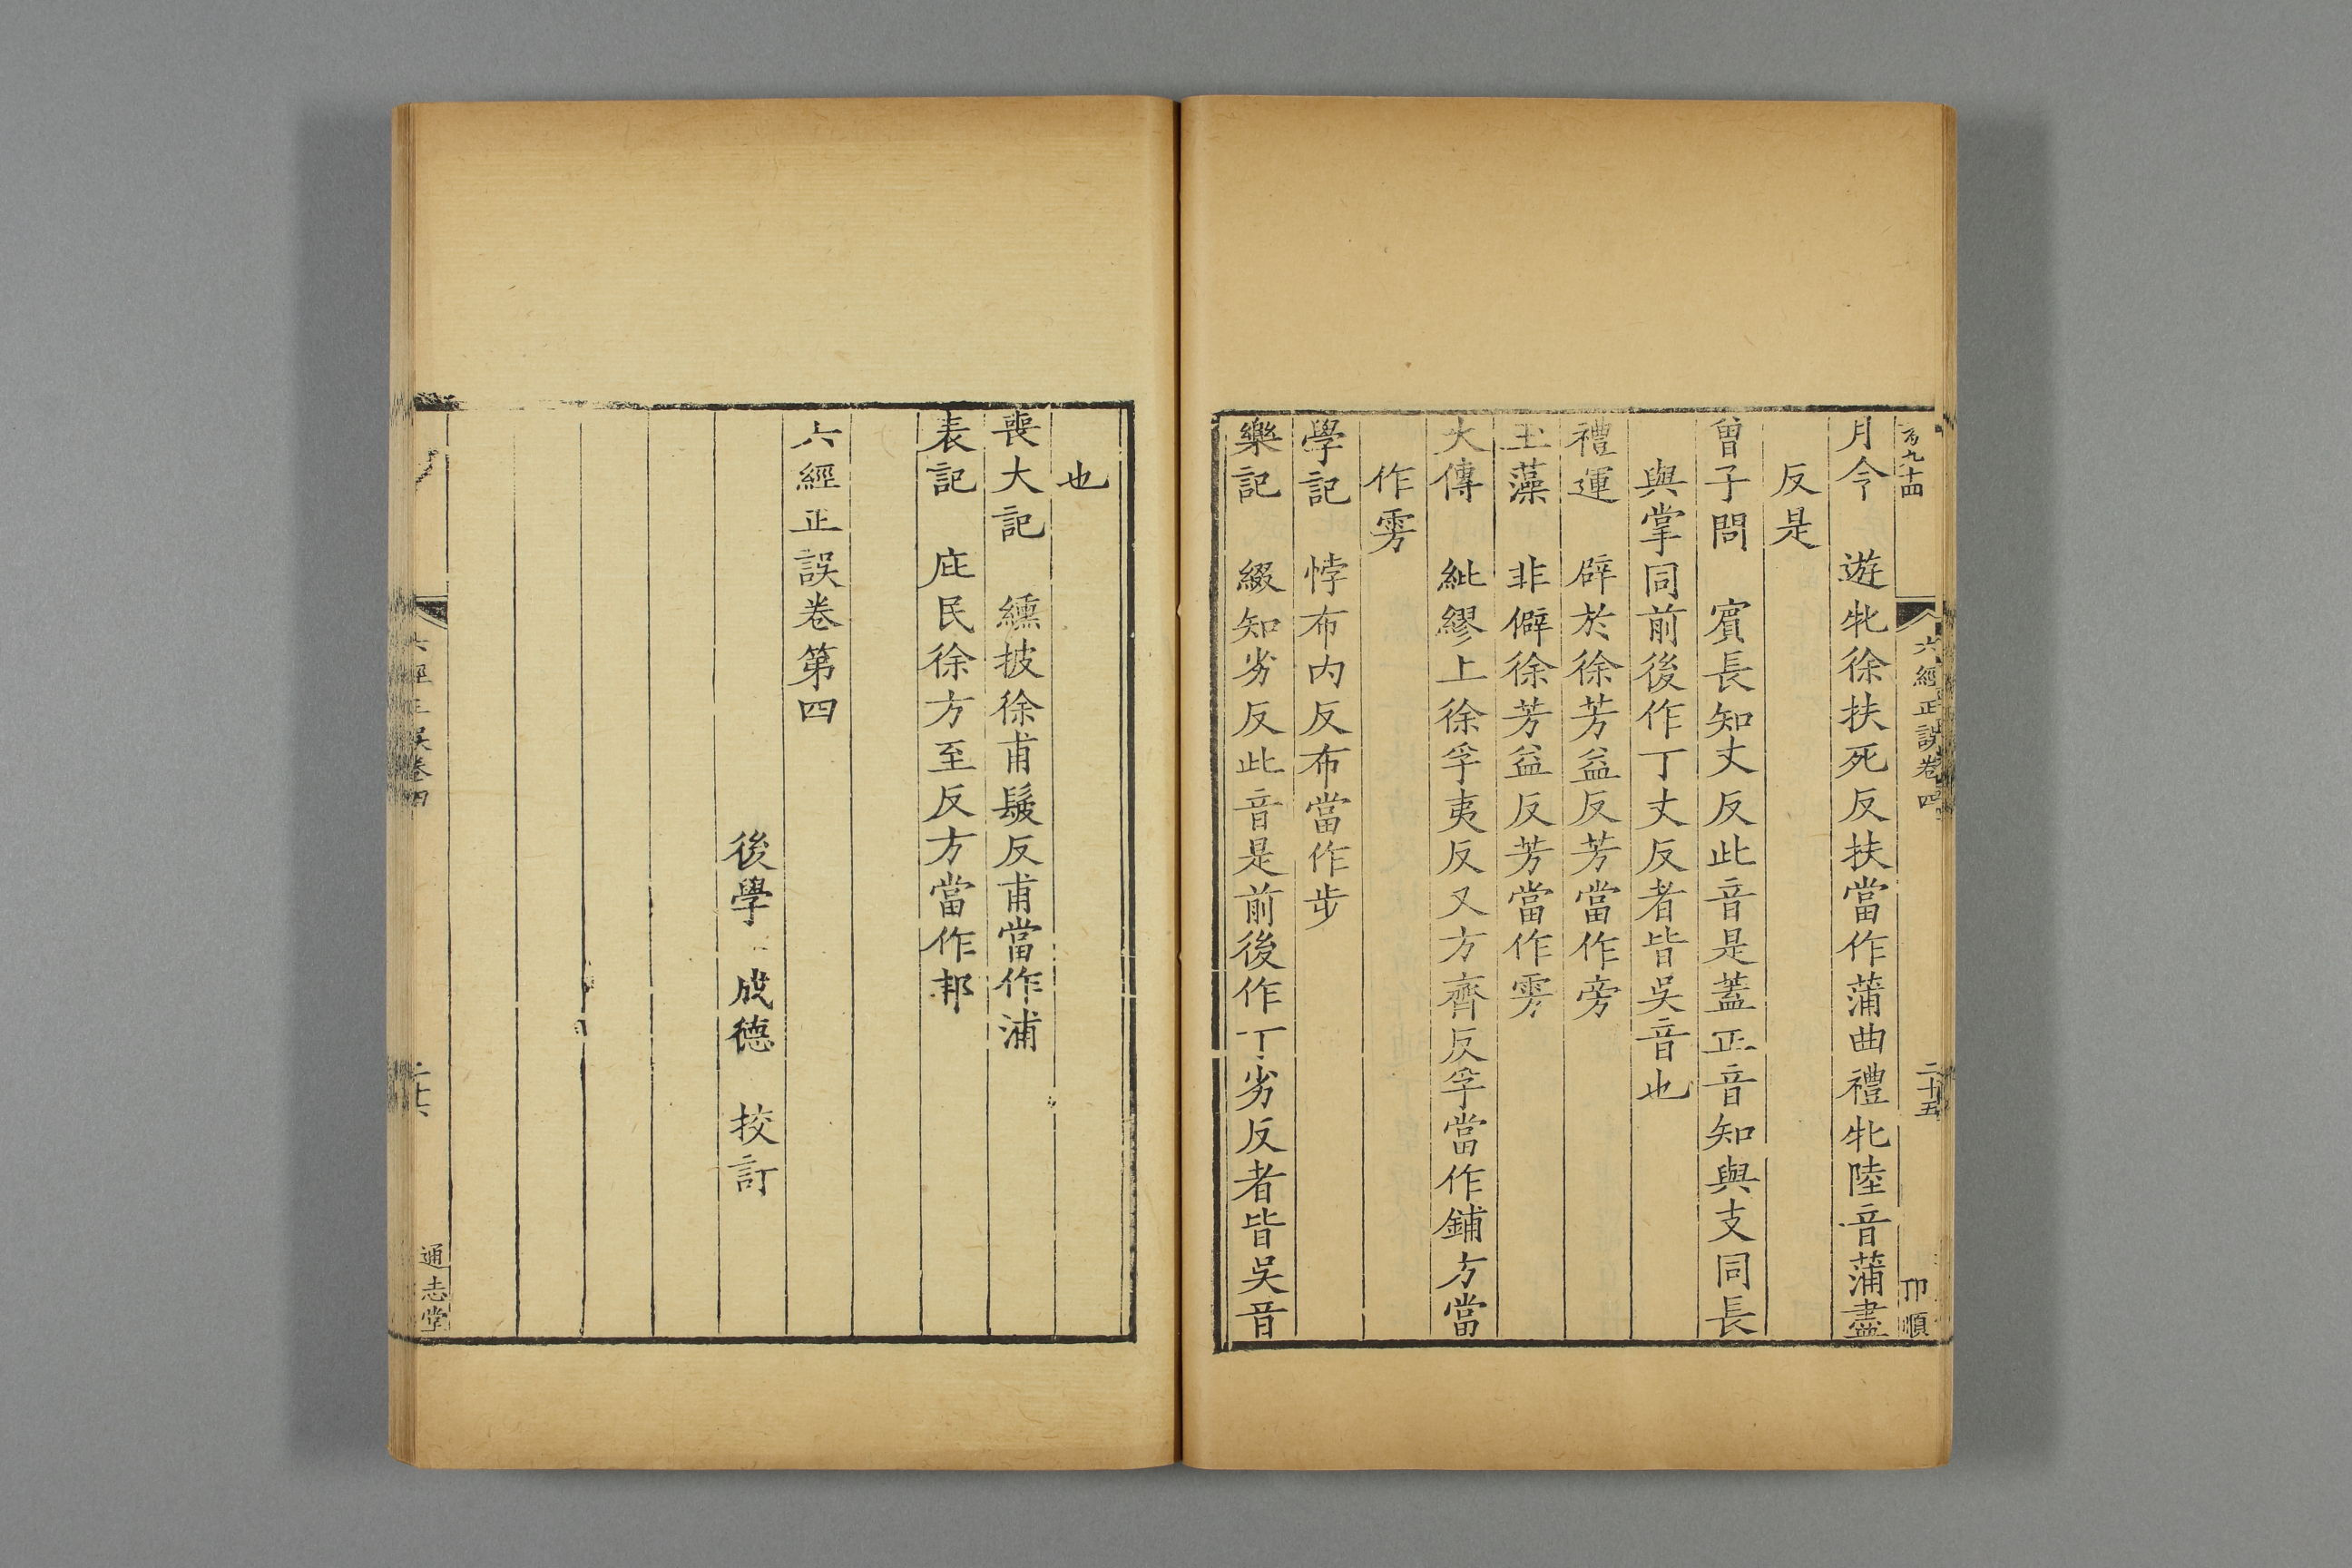 月令　遊牝徐扶死反扶當作蒲曲禮牝陸音蒲盡
反是
曾子問　賔長知丈反此音是蓋正音知與支同長
與掌同前後作丁丈反者皆吳音也
禮運　辟於徐芳益反芳當作旁
玉藻　非僻徐芳益反芳當作雱
大傳　紕繆上徐孚夷反又方齊反孚當作鋪方當
作雱
學記　悖布内反布當作步
樂記　綴知劣反此音是前後作丁劣反者皆吳音
六經正誤卷四
二十五
順
也
喪大記　纁披徐甫髲反甫當作浦
表記　庇民徐方至反方當作邦
六經正誤卷第四
後學　成德　挍訂
六經正誤卷四
通志堂